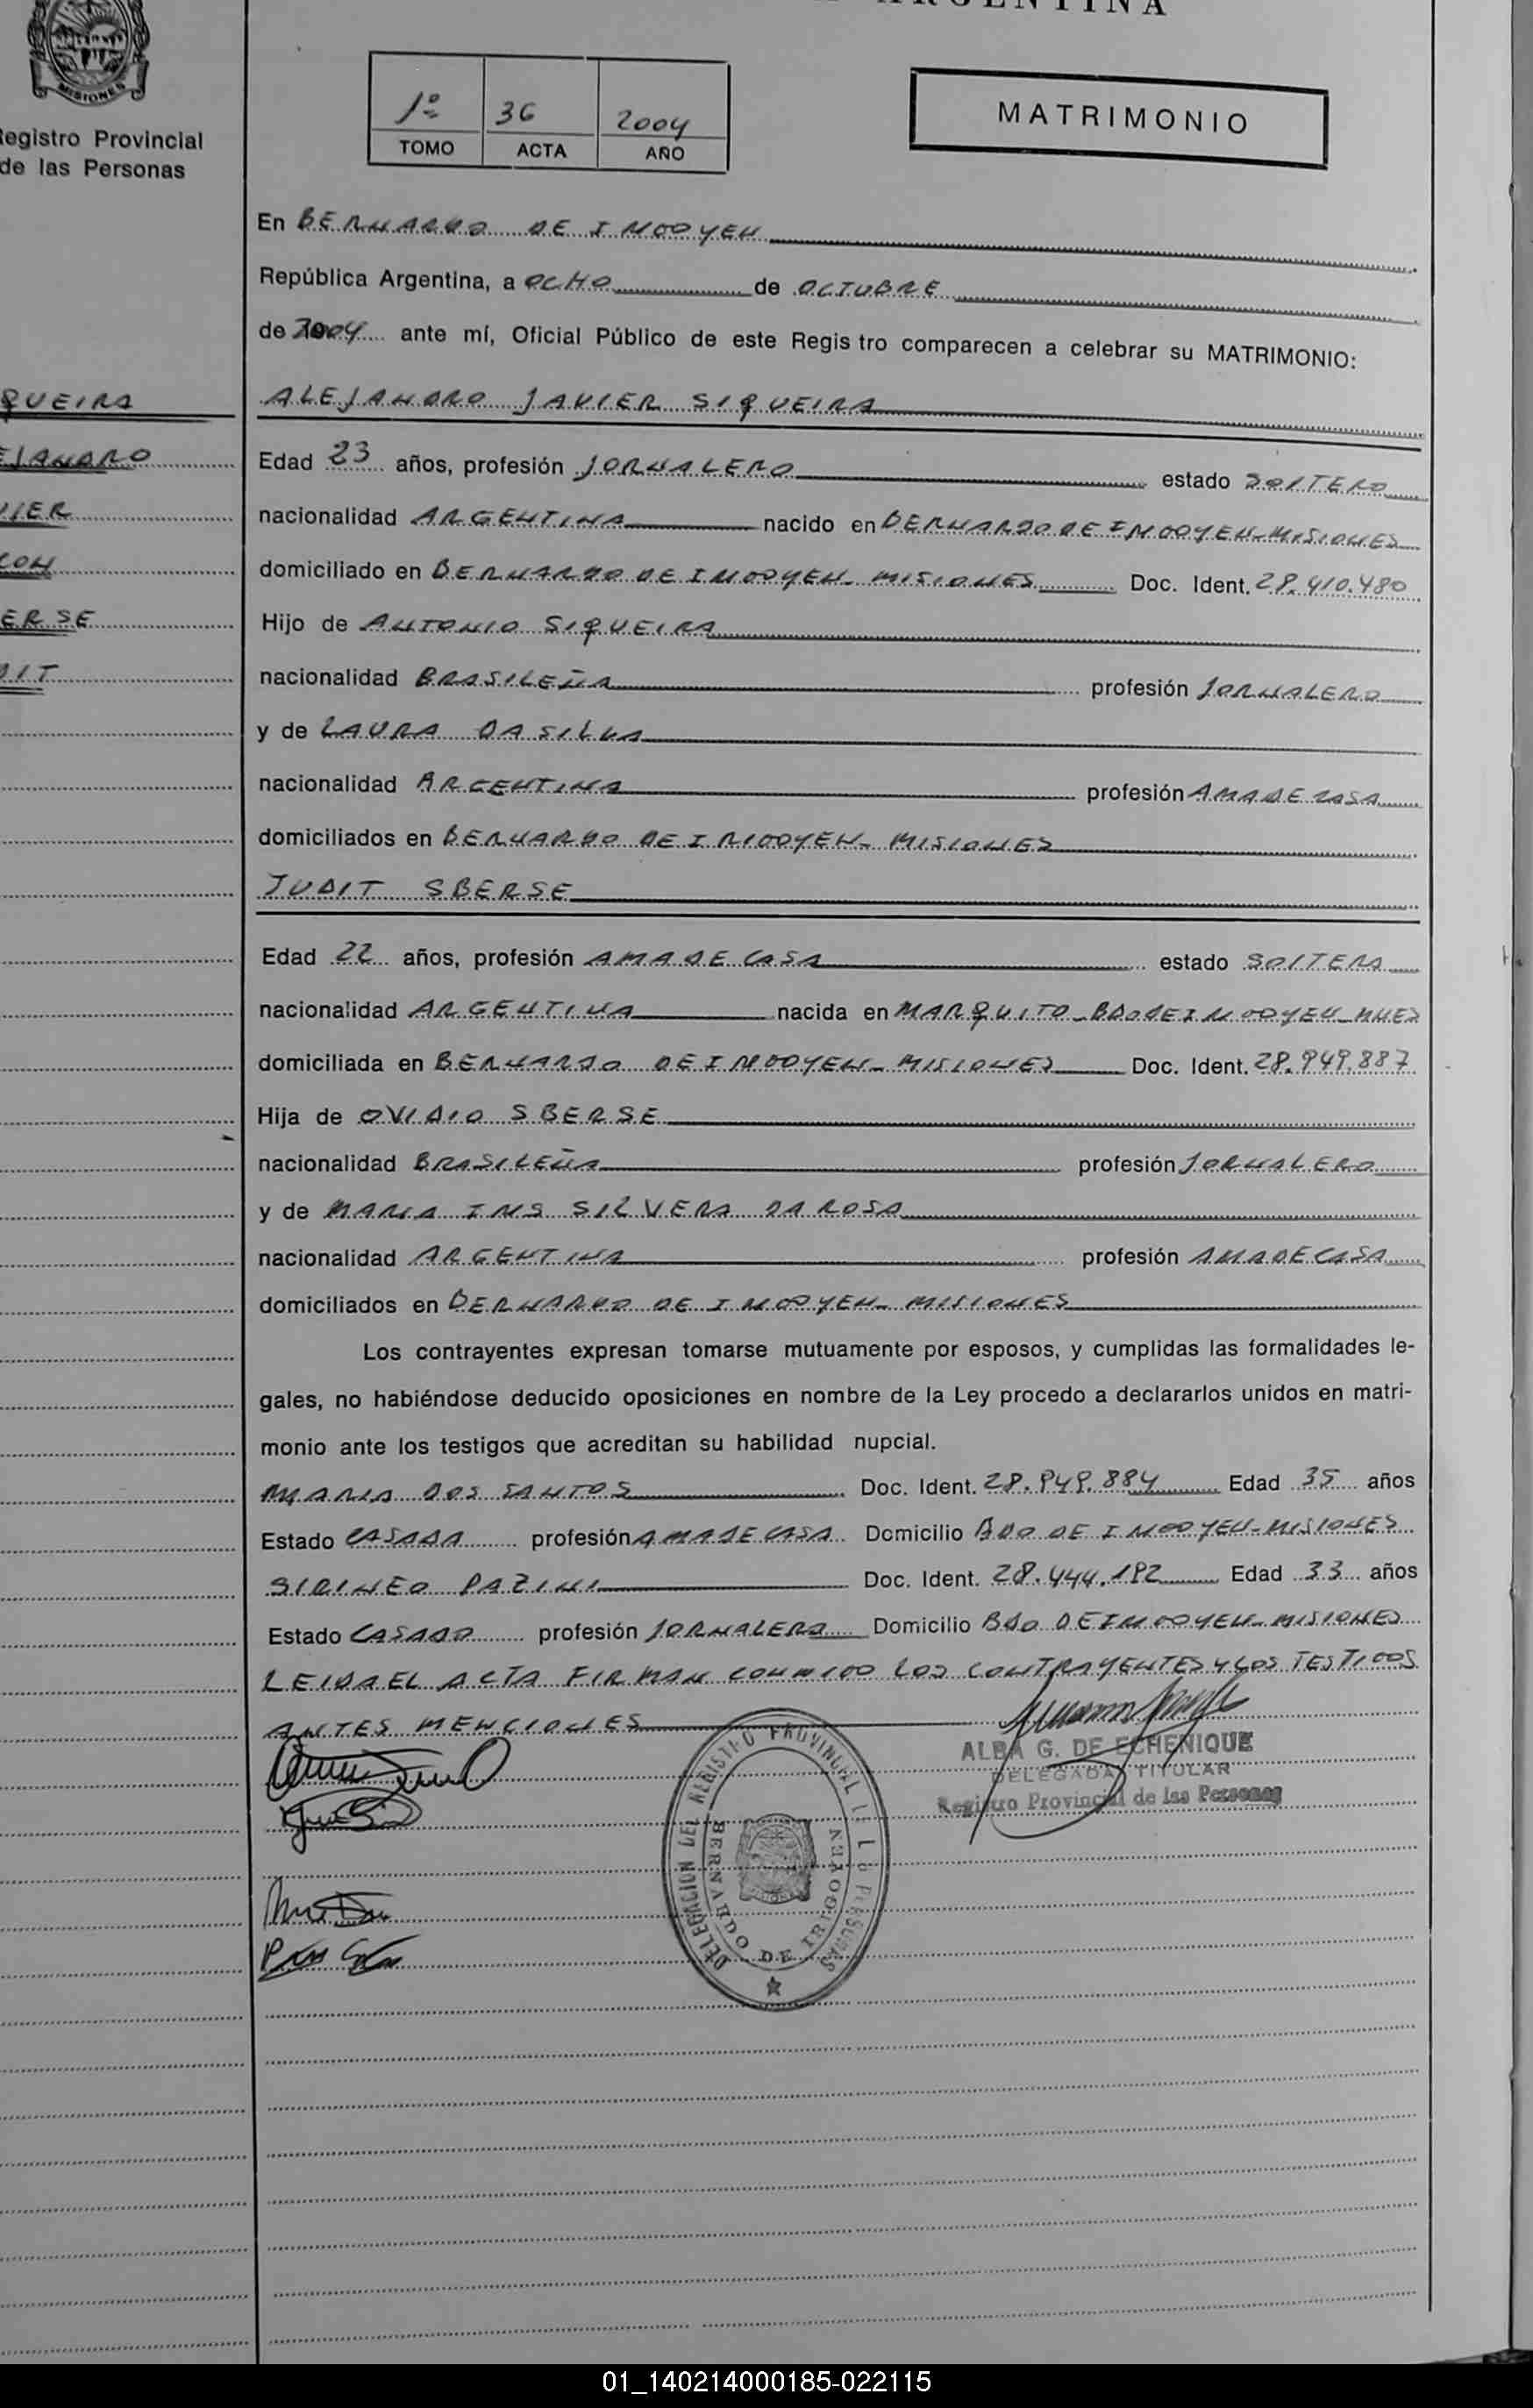 ARGENTINA
MISIONES
Registro Provincial
de las Personas
1º 36 2004
TOMO ACTA AÑO
MATRIMONIO
En BERNARDO DE IRIGOYEN
República Argentina, a OCHO de OCTUBRE
de 2004 ante mí, Oficial Público de este Regis tro comparecen a celebrar su MATRIMONIO:
QUEIRA
ALEJANDRO JAVIER SIQUEIRA
EJANDRO
Edad 23 años, profesión JORNALERO estado SOLTERO
VIER
nacionalidad ARGENTINA nacido en BERNARDO DE IRIGOYEN-MISIONES
CON
domiciliado en BERNARDO DE IRIGOYEN - MISIONES Doc. Ident. 28.410.480
ERSE
Hijo de ANTONIO SIQUEIRA
DIT
nacionalidad BRASILEÑA profesión JORNALERO
y de LAURA DA SILVA
nacionalidad ARGENTINA profesión AMA DE CASA
domiciliados en BERNARDO DE IRIGOYEN - MISIONES
JUDIT SBERSE
Edad 22 años, profesión AMA DE CASA estado SOLTERA
nacionalidad ARGENTINA nacida en MARQUITO - BDO DE IRIGOYEN - MNES
domiciliada en BERNARDO DE IRIGOYEN - MISIONES Doc. Ident. 28.949.887
Hija de OVIDIO SBERSE
nacionalidad BRASILEÑA profesión JORNALERO
y de MARIA INS SILVERA DA ROSA
nacionalidad ARGENTINA profesión AMA DE CASA
domiciliados en BERNARDO DE IRIGOYEN - MISIONES
Los contrayentes expresan tomarse mutuamente por esposos, y cumplidas las formalidades le-
gales, no habiéndose deducido oposiciones en nombre de la Ley procedo a declararlos unidos en matri-
monio ante los testigos que acreditan su habilidad nupcial.
MARIA DOS SANTOS Doc. Ident. 28.949.884 Edad 35 años
Estado CASADA profesión AMA DE CASA Domicilio BDO DE IRIGOYEN-MISIONES
SIRINEO PAZINI Doc. Ident. 28.444.192 Edad 33 años
Estado CASADO profesión JORNALERO Domicilio BDO DE IRIGOYEN-MISIONES
LEIDA EL ACTA FIRMAN CONMIGO LOS CONTRAYENTES Y LOS TESTIGOS
ANTES MENCIONES
ALBA G. DE ECHENIQUE
DELEGADA TITULAR
Registro Provincial de las Personas
DELEGACION DEL REGISTRO PROVINCIAL DE LAS PERSONAS
BERNARDO DE IRIGOYEN
01_140214000185-022115